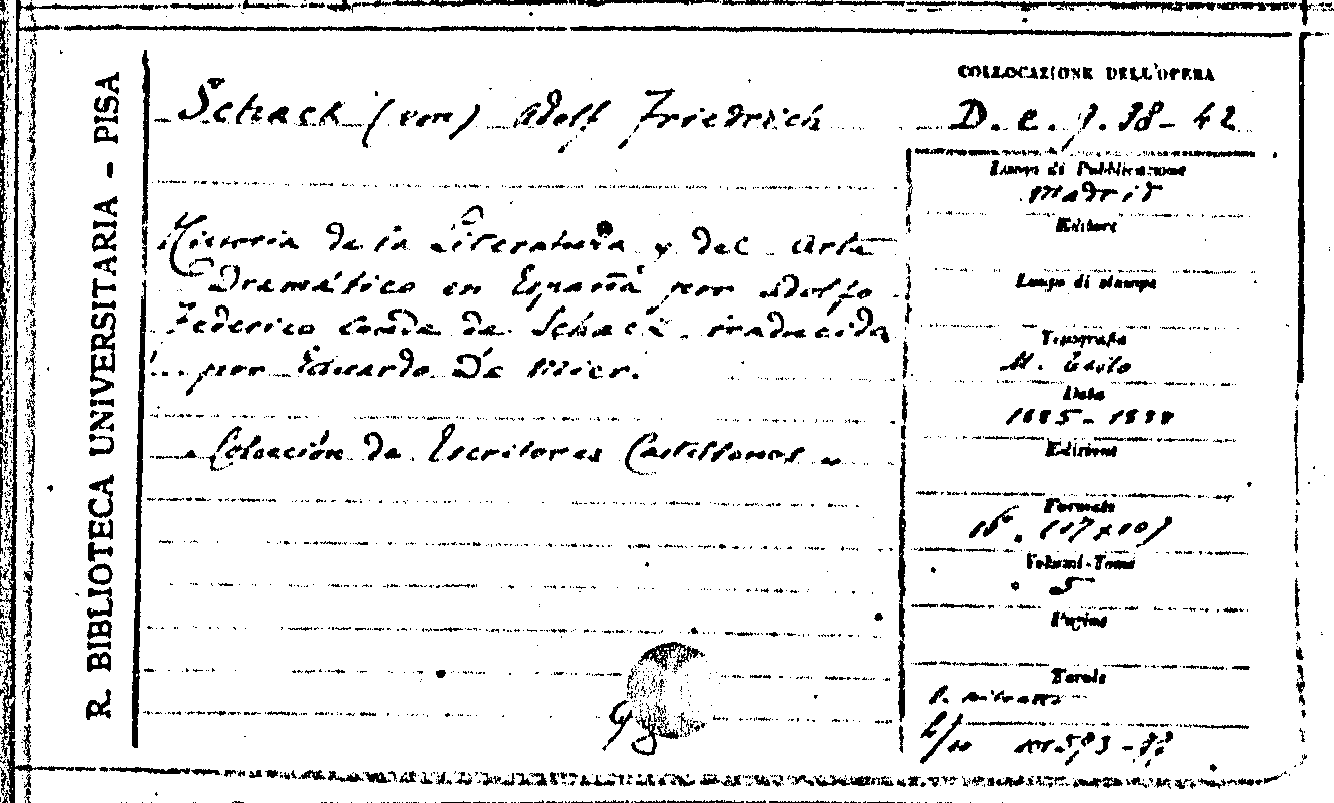 R. BIBLIOTECA UNIVERSITARIA - PISA
Schack (von) Adolf Friedrich
Historia de la Literatura y del Arte
Dramático en España por Adolfo
Federico Conde de Schack. traducida
por Eduardo De Mier.
Colección de Escritores Castellanos
COLLOCAZIONE DELL'OPERA
D. e. 7. 38 - 42
Luogo di Pubblicazione
Madrid
Editore
Luogo di stampa
Tipografia
M. Tello
Data
1885 - 1888
Edizione
Formato
16°.
Volumi-Tomi
5
Pagine
Tavole